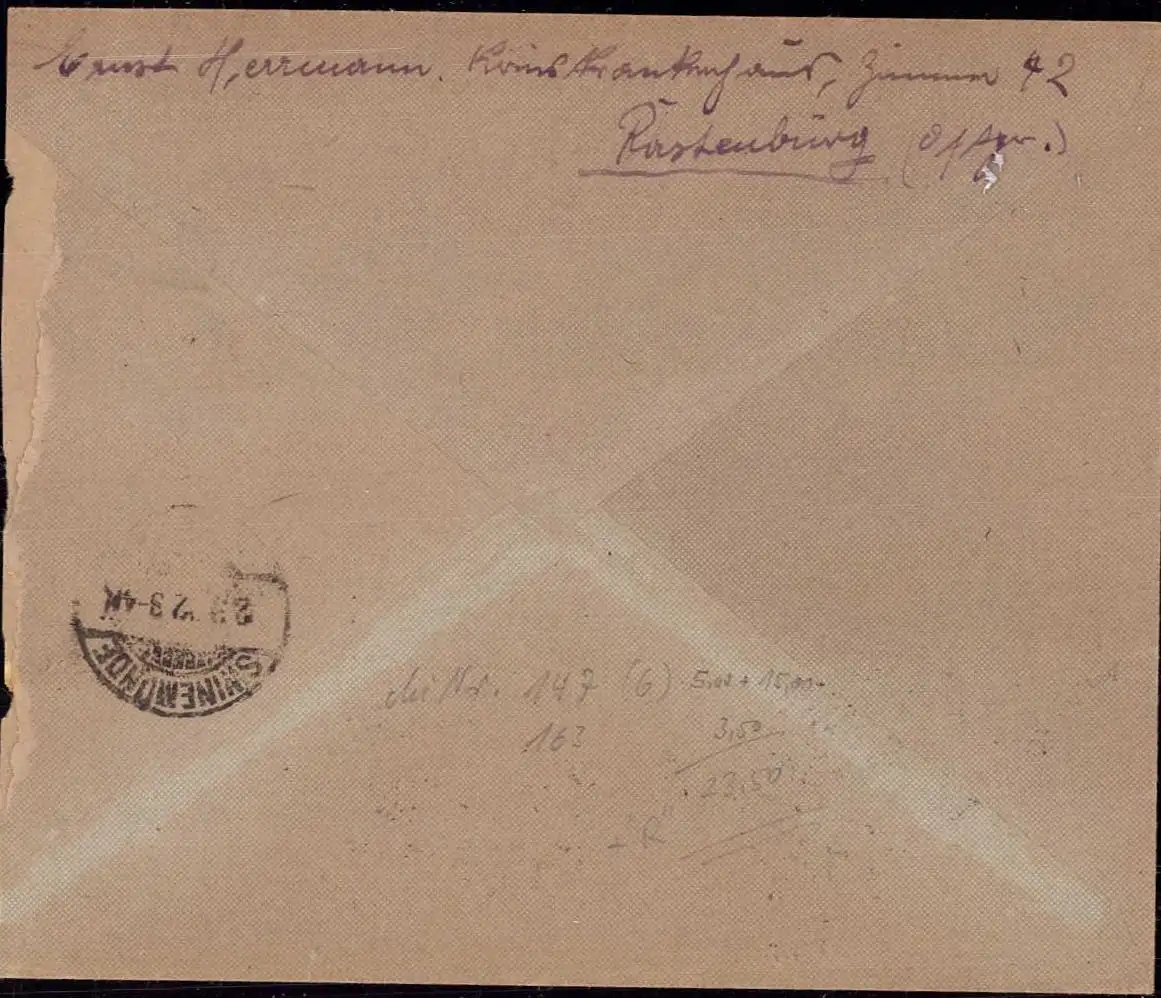 Ernst Herrmann. Kreiskrankenhaus, Zimmer 42
Rastenburg (Ostpr.)
SWINEMÜNDE
2 3-4N
Mi Nr. 147 (6) 5,00 + 15,00
163 3,50
23,50
+ "R"